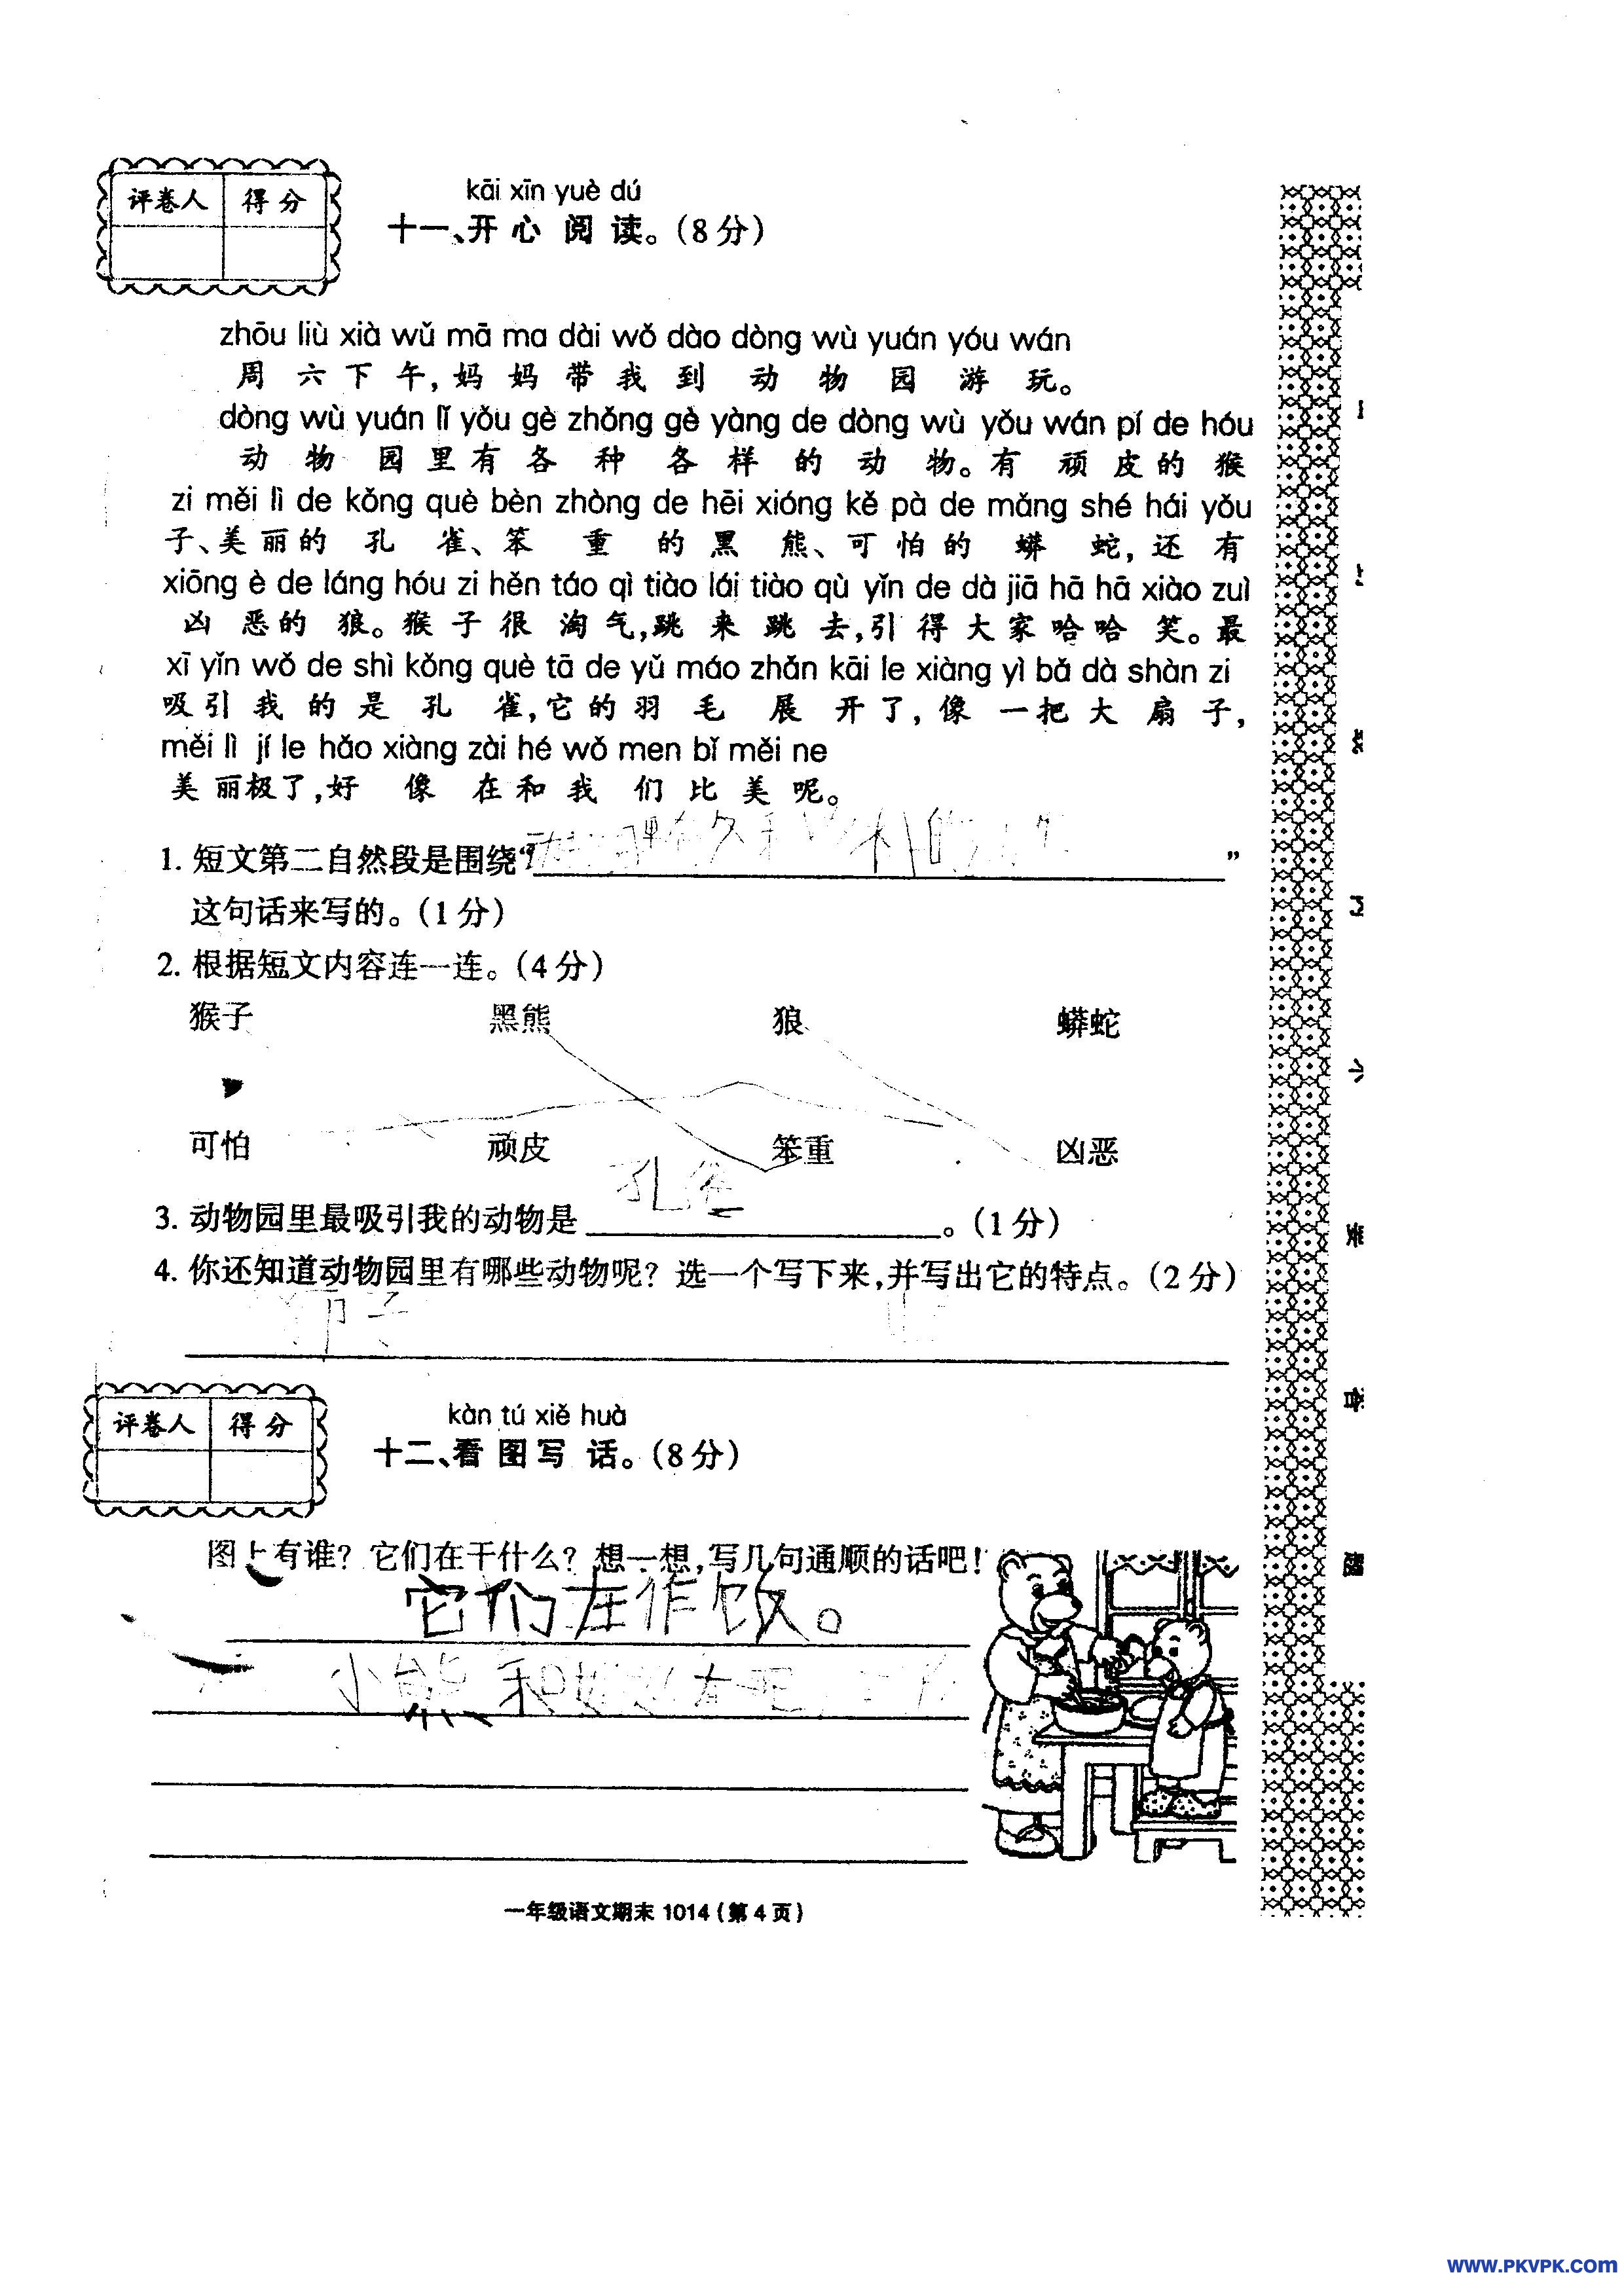 评卷人 得分
kāi xīn yuè dú
十一、开心阅读。(8分)
zhōu liù xià wǔ mā ma dài wǒ dào dòng wù yuán yóu wán
周六下午,妈妈带我到动物园游玩。
dòng wù yuán lǐ yǒu gè zhǒng gè yàng de dòng wù yǒu wán pí de hóu
动物园里有各种各样的动物。有顽皮的猴
zi měi lì de kǒng què bèn zhòng de hēi xióng kě pà de mǎng shé hái yǒu
子、美丽的孔雀、笨重的黑熊、可怕的蟒蛇,还有
xiōng è de láng hóu zi hěn táo qì tiào lái tiào qù yǐn de dà jiā hā hā xiào zuì
凶恶的狼。猴子很淘气,跳来跳去,引得大家哈哈笑。最
xī yǐn wǒ de shì kǒng què tā de yǔ máo zhǎn kāi le xiàng yì bǎ dà shàn zi
吸引我的是孔雀,它的羽毛展开了,像一把大扇子,
měi lì jí le hǎo xiàng zài hé wǒ men bǐ měi ne
美丽极了,好像在和我们比美呢。
1. 短文第二自然段是围绕“ 里 的 ”
这句话来写的。(1分)
2. 根据短文内容连一连。(4分)
猴子 黑熊 狼 蟒蛇
可怕 顽皮 笨重 凶恶
3. 动物园里最吸引我的动物是 孔雀 。(1分)
4. 你还知道动物园里有哪些动物呢? 选一个写下来,并写出它的特点。(2分)
评卷人 得分
kàn tú xiě huà
十二、看图写话。(8分)
图上有谁? 它们在干什么? 想一想,写几句通顺的话吧!
它们在作饭。
小熊和
一年级语文期末 1014(第4页)
答
题
WWW.PKVPK.COM